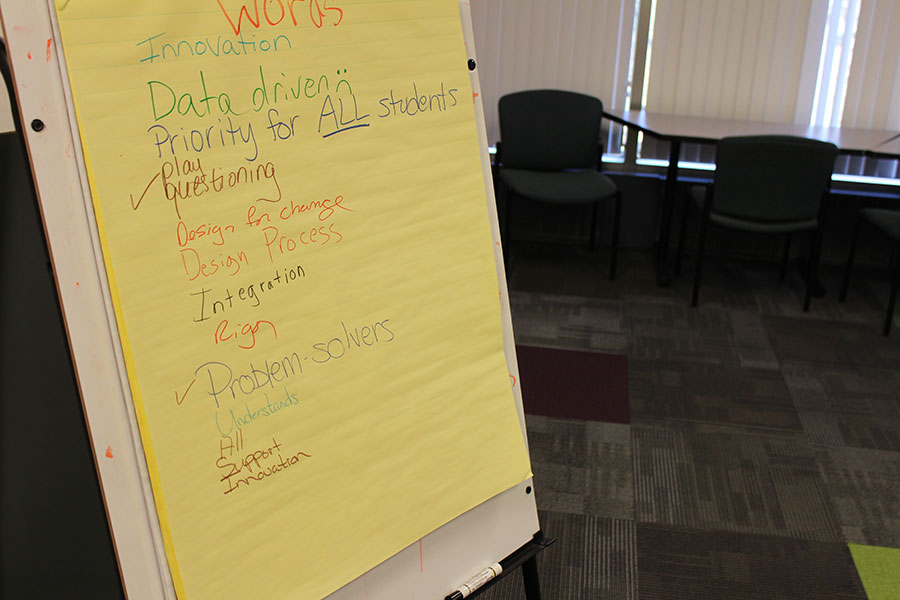 Words
Innovation
Data driven
Priority for ALL students
play
questioning
Design for change
Design Process
Integration
Rigor
Problem-solvers
Understands
All
Support
Innovation